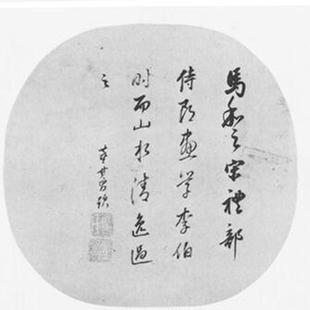 馬和之宋禮部
侍郎畫學李伯
時而山水清逸過
之
董其昌